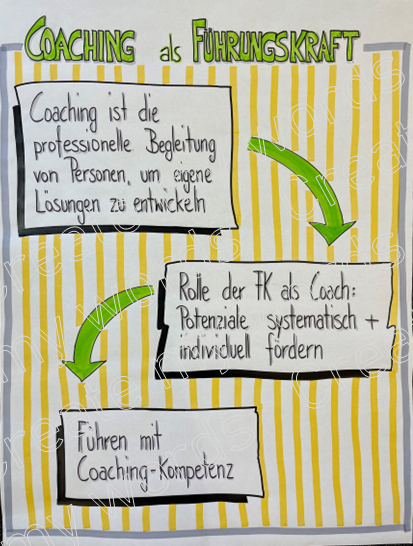 COACHING als FÜHRUNGSKRAFT
Coaching ist die
professionelle Begleitung
von Personen, um eigene
Lösungen zu entwickeln
Rolle der FK als Coach:
Potenziale systematisch +
individuell fördern
Führen mit
Coaching-Kompetenz